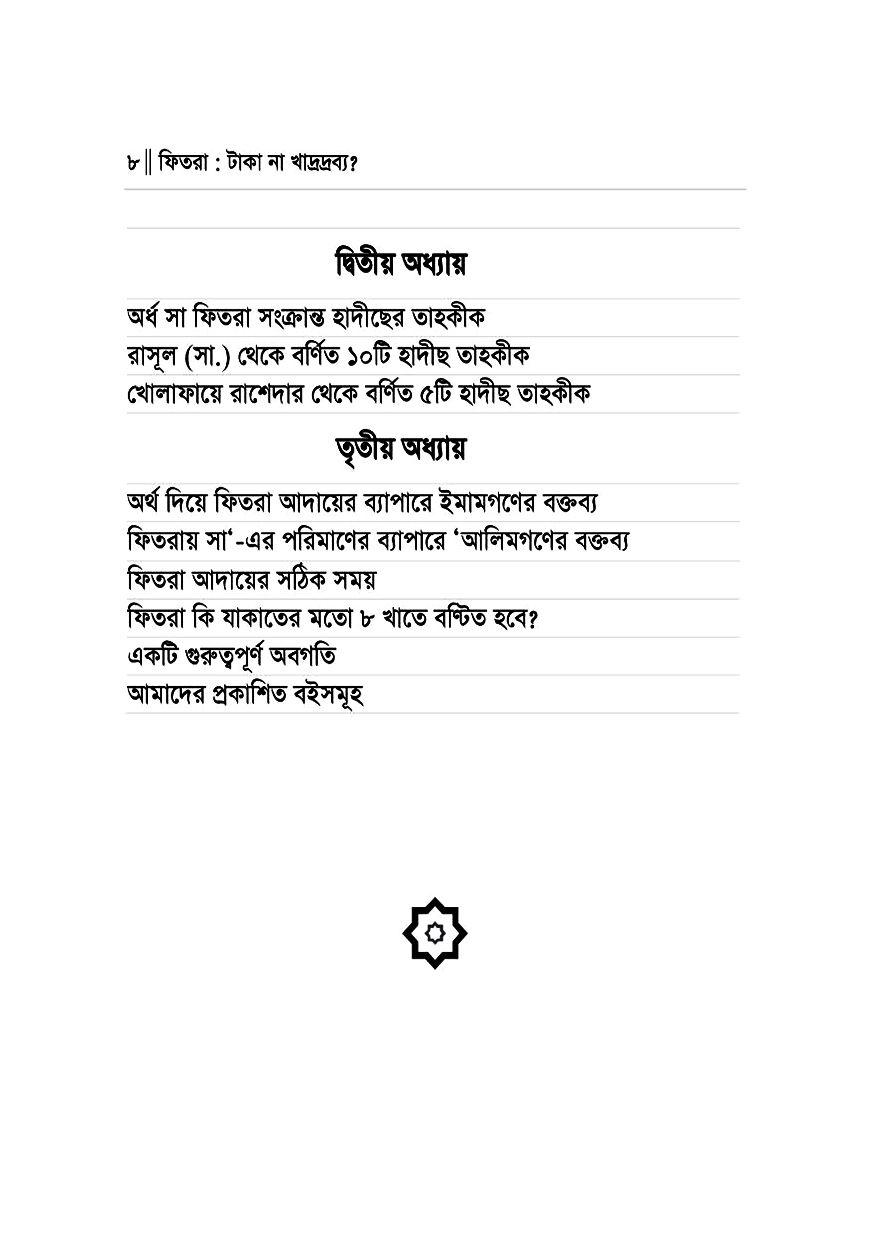 ৮ || ফিতরা : টাকা না খাদ্রদ্রব্য?
দ্বিতীয় অধ্যায়
অর্ধ সা ফিতরা সংক্রান্ত হাদীছের তাহকীক
রাসূল (সা.) থেকে বর্ণিত ১০টি হাদীছ তাহকীক
খোলাফায়ে রাশেদার থেকে বর্ণিত ৫টি হাদীছ তাহকীক
তৃতীয় অধ্যায়
অর্থ দিয়ে ফিতরা আদায়ের ব্যাপারে ইমামগণের বক্তব্য
ফিতরায় সা‘-এর পরিমাণের ব্যাপারে ‘আলিমগণের বক্তব্য
ফিতরা আদায়ের সঠিক সময়
ফিতরা কি যাকাতের মতো ৮ খাতে বণ্টিত হবে?
একটি গুরুত্বপূর্ণ অবগতি
আমাদের প্রকাশিত বইসমূহ